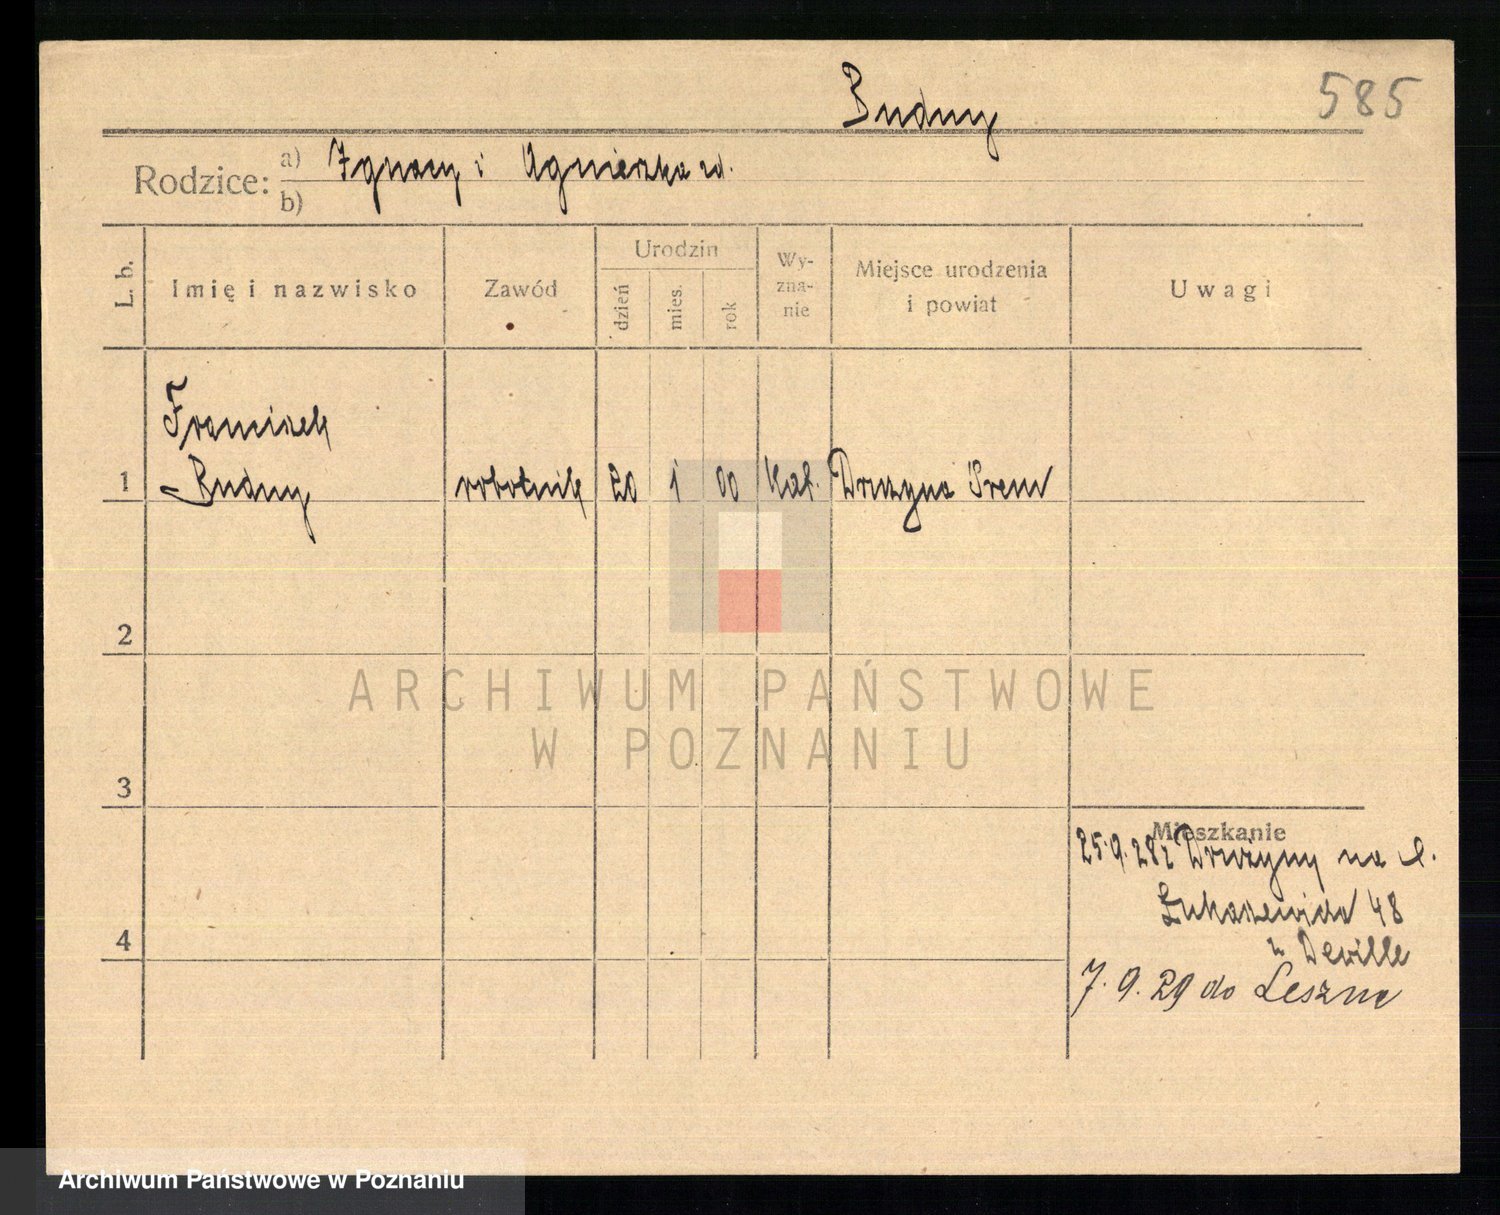 Budny
585
Rodzice:
a) Ignacy i Agnieszka zd.
b)
L. b.
Imię i nazwisko
Zawód
Urodzin
dzień
mies.
rok
Wy-
zna-
nie
Miejsce urodzenia
i powiat
Uwagi
Franciszek
1 Budny robotnik 20 1 00 Kat. Drużyna Śrem
2
3
4
Mieszkanie
25.9.28 z Drużyny na
48
u Deville
7.9.29 do Leszna
ARCHIWUM PAŃSTWOWE
W POZNANIU
Archiwum Państwowe w Poznaniu